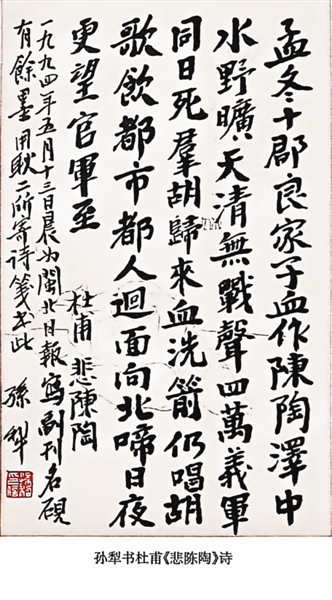 孟冬十郡良家子血作陳陶澤中
水野曠天清無戰聲四萬義軍
同日死羣胡歸來血洗箭仍唱胡
歌飲都市都人迴面向北啼日夜
更望官軍至
杜甫 悲陳陶
一九九四年五月十三日晨为閩北日報寫副刊名硯
有餘墨用耿二所寄詩箋書此
孫犁
孙犁书杜甫《悲陈陶》诗